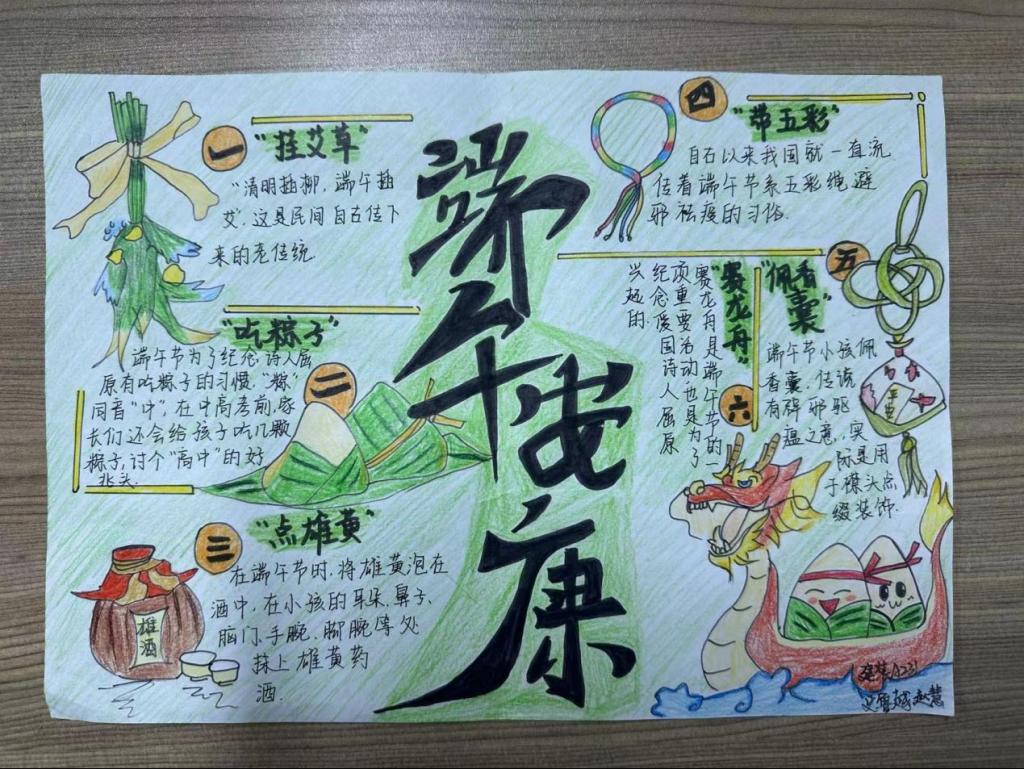 端午安康
一
"挂艾草"
"清明插柳，端午插
艾"，这是民间自古传下
来的老传统.
"吃粽子"
二
端午节为了纪念诗人屈
原有吃粽子的习惯，"粽"
同音"中"，在中高考前，家
长们还会给孩子吃几颗
粽子，讨个"高中"的好
兆头.
三
"点雄黄"
在端午节时，将雄黄泡在
酒中，在小孩的耳朵、鼻子、
脑门、手腕、脚腕等处
抹上雄黄药
酒.
雄酒
四
"带五彩"
自古以来我国就一直流
传着端午节系五彩绳避
邪祛瘟的习俗.
五
"佩香囊"
端午节小孩佩
香囊，传说
有辟邪驱
瘟之意，实
际是用
于襟头点
缀装饰.
平安
六
"赛龙舟"
赛龙舟是端午节的一
项重要活动，也是为了
纪念爱国诗人屈原
兴起的.